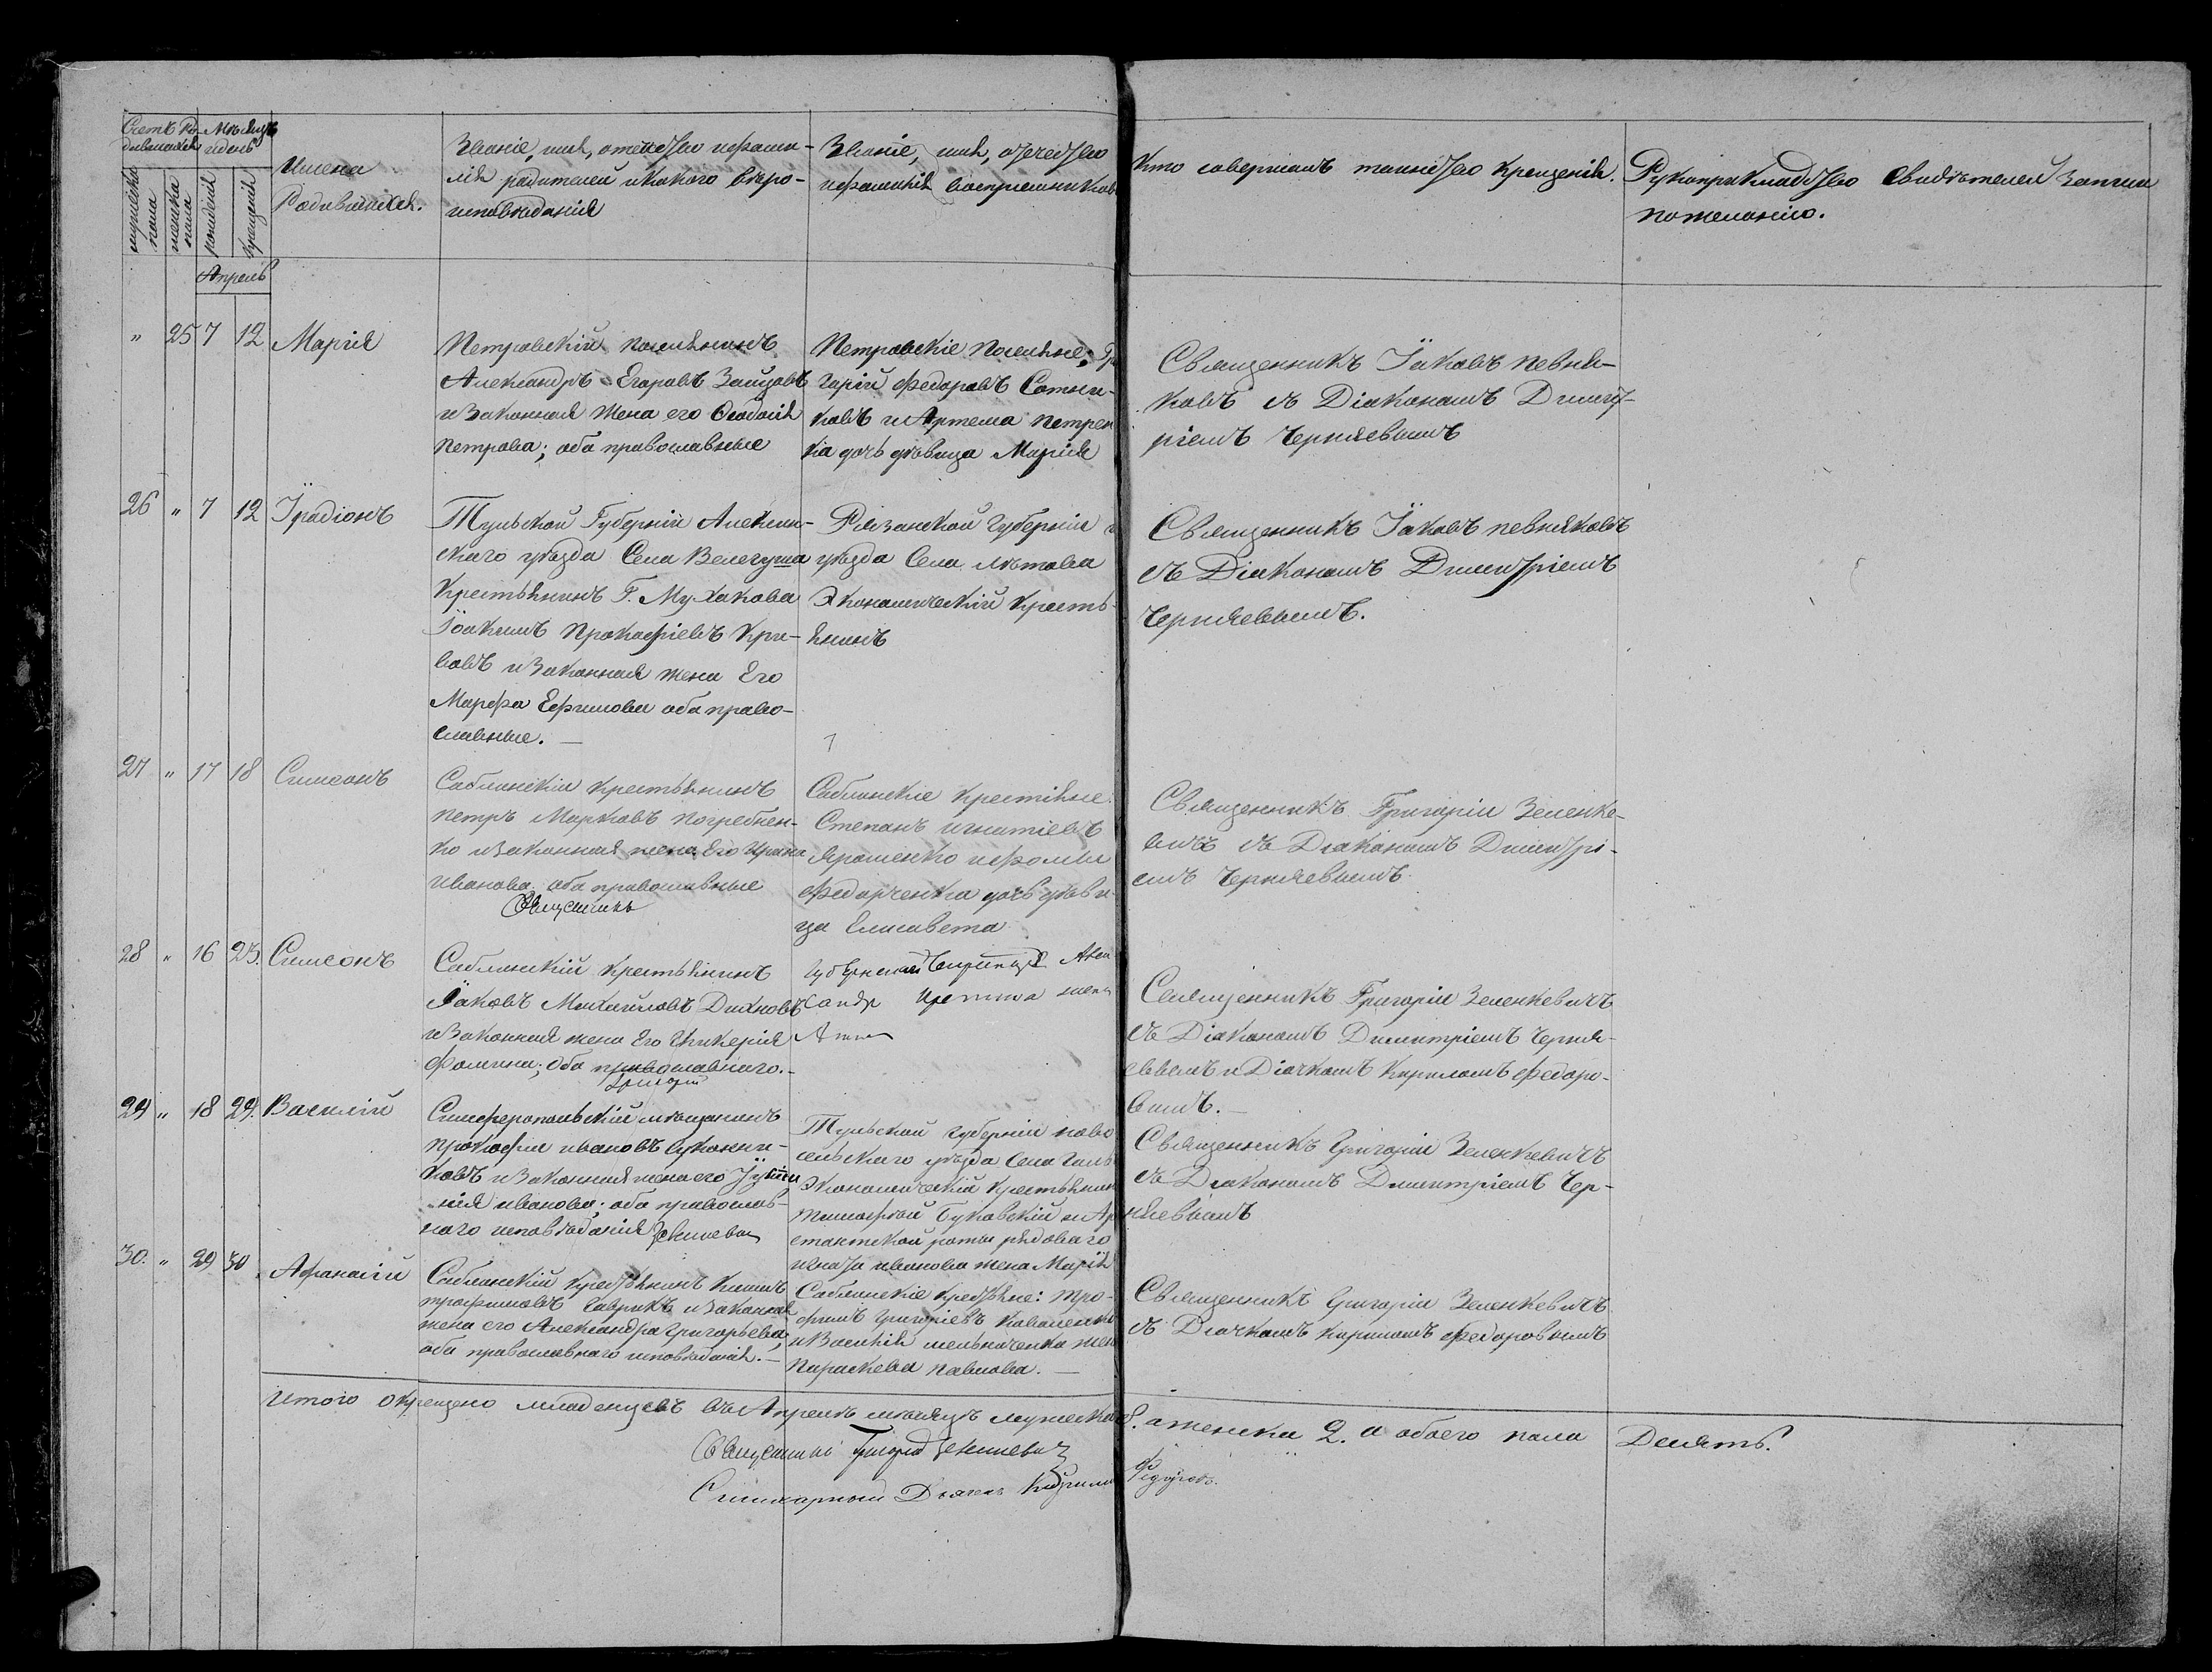 Счетъ Ро-
дившихся
Мѣсяцъ
и день
мужеска
пола
женска
пола
рожденія
крещенія
Имена
Родившихся.
Званіе, имя, отечество и фами-
лія родителей и какого вѣро-
исповѣданія
Званіе, имя, отечество
и фамилія восприемниковъ
Кто совершалъ таинство крещенія.
Рукоприкладство свидѣтелей записи
по желанію.
Апрель
" 25 7 12 Марія
Петровскій поселянинъ
Александръ Егоровъ Зайцовъ
и Законная жена его Феодосія
Петрова; оба православные
Петровские Поселяне; Гри
горій Федоровъ Сотни-
ковъ и Артема Петрен
ка дочь дѣвица Марія
Священникъ Іаковъ Певня-
ковъ съ Діакономъ Димит-
ріемъ Черняевымъ
26 " 7 12 Іродіонъ
Тульской Губерніи Алексин-
скаго уѣзда Села Велегуша
Крестьянинъ Г. Муханова
Іоакимъ Прокофіевъ Кри-
вовъ и Законная жена Его
Марфа Ефимова оба право-
славные. —
Рязанской Губерніи
уѣзда Села Лѣтова
Экономическій Кресть-
янинъ
Священникъ Іаковъ Певняковъ
съ Діакономъ Димитріемъ
Черняевымъ.
27 " 17 18 Симеонъ
Саблинскій крестьянинъ
Петръ Марковъ Погребнен-
ко и Законная жена Его Ирина
Иванова оба православные
Священникъ
Саблинскіе крестіяне
Степанъ Игнатіевъ
Ярошенко и Фомы
Федорченка дочь дѣви-
ца Елисавета
Священникъ Григорій Зеленке-
вичъ съ Діакономъ Димитрі-
емъ Черняевымъ.
28 " 16 23. Симеонъ
Саблинскій крестьянинъ
Іаковъ Михайловъ Дихновъ
и Законная жена Его Гликерія
Фомина; оба православнаго.—
Григорій
Губернский Алек
сандр жена
Анна
Священникъ Григорій Зеленкевичъ
съ Діакономъ Димитріемъ Черня-
евымъ и Діачкомъ Кириломъ Федоро-
вымъ.—
29 " 18 29. Василій
Симферопольскій мѣщанинъ
Прокофій Ивановъ Сукони-
ковъ и Законная жена его Іулiя
нія Иванова; оба православ-
наго исповѣданія Зеленкевич
Тульской губерніи Ново
сельскаго уѣзда Села
Экономическій Крестьянин
Тимофей Буковский и Ар
естантской роты рядоваго
Игната Иванова жена Марія
Священникъ Григорій Зеленкевичъ
съ Діакономъ Димитріемъ Чер-
няевымъ
30. " 29 30 Афанасій
Саблинскій крестьянинъ Климъ
Трофимовъ Гаврикъ и законная
жена его Александра Григорьева,
оба православнаго исповѣданія.—
Саблинскіе крестьяне: Тро-
фимъ Григоріевъ Коваленко
и Василія Мельниченка жена
Параскева Павлова. —
Священникъ Григорій Зеленкевичъ
съ Діачкомъ Кириломъ Федоровымъ
Итого окрещено младенцевъ въ Апрелѣ мѣсяцѣ мужеска 8. а женска 2. а обоего пола Десять.
Священникъ Григорій Зеленкевичъ
Стихарный Дьячекъ Кирилъ Федоровъ.